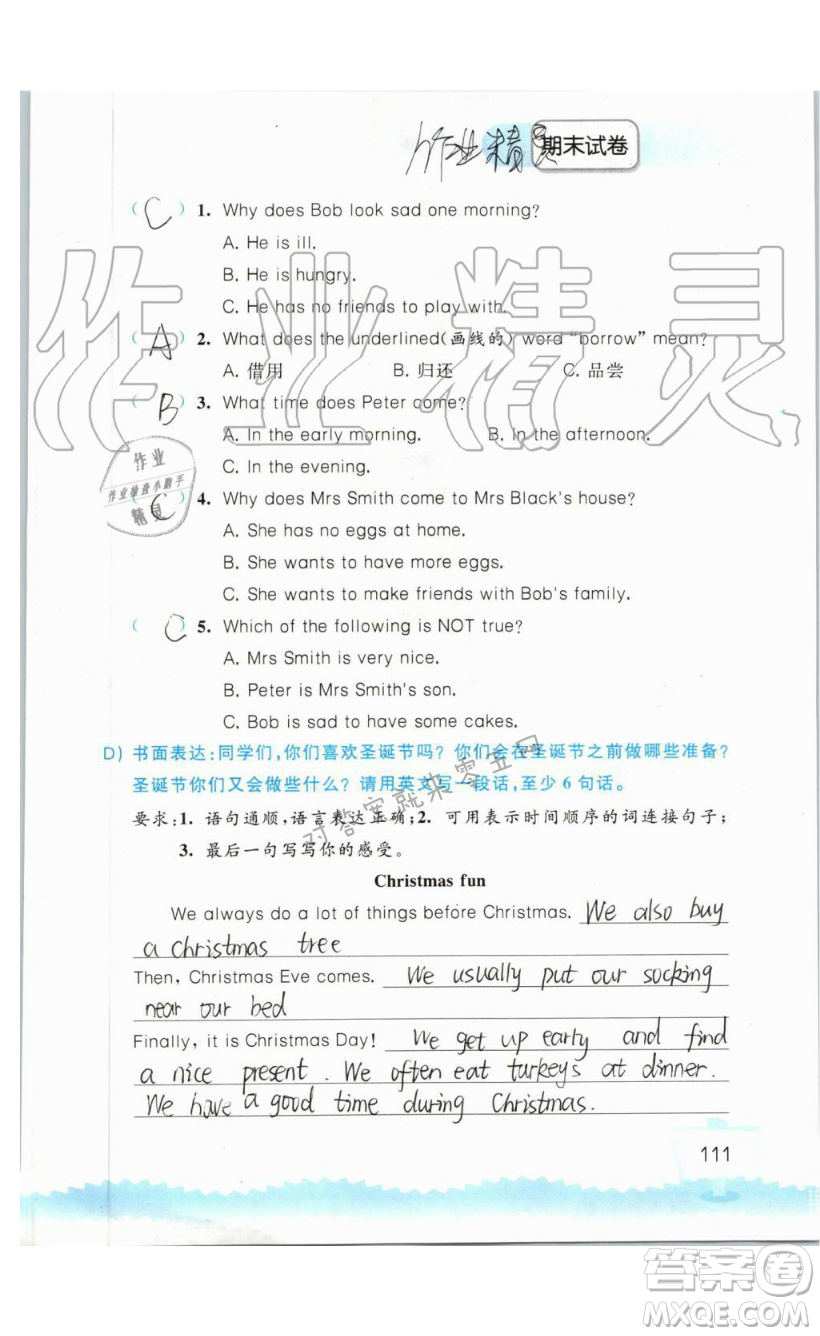 作业精灵
期末试卷
( C ) 1. Why does Bob look sad one morning?
A. He is ill.
B. He is hungry.
C. He has no friends to play with.
( A ) 2. What does the underlined(画线的) word “borrow” mean?
A. 借用 B. 归还 C. 品尝
( B ) 3. What time does Peter come?
A. In the early morning. B. In the afternoon.
C. In the evening.
( C ) 4. Why does Mrs Smith come to Mrs Black's house?
A. She has no eggs at home.
B. She wants to have more eggs.
C. She wants to make friends with Bob's family.
( C ) 5. Which of the following is NOT true?
A. Mrs Smith is very nice.
B. Peter is Mrs Smith's son.
C. Bob is sad to have some cakes.
D) 书面表达:同学们,你们喜欢圣诞节吗? 你们会在圣诞节之前做哪些准备?
圣诞节你们又会做些什么? 请用英文写一段话,至少 6 句话。
要求:1. 语句通顺,语言表达正确;2. 可用表示时间顺序的词连接句子;
3. 最后一句写写你的感受。
Christmas fun
We always do a lot of things before Christmas. We also buy
a Christmas tree
Then, Christmas Eve comes. We usually put our socking
near our bed
Finally, it is Christmas Day! We get up early and find
a nice present. We often eat turkeys at dinner.
We have a good time during Christmas.
111
作业精灵
作业
作业检查小助手
精灵
对答案就来零五网
答案圈
MXQE.COM